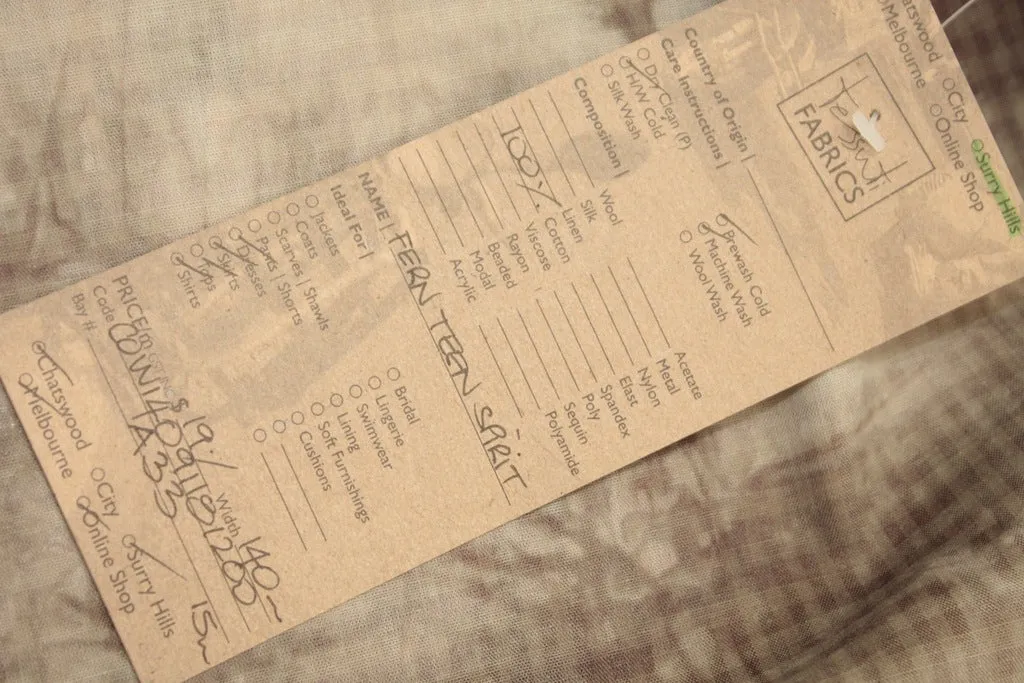 Chatswood
City
Surry Hills
Melbourne
Online Shop
Tessuti
FABRICS
Country of Origin |
Care Instructions |
Dry Clean (P)
Prewash Cold
H/W Cold
Machine Wash
Silk Wash
Wool Wash
Composition |
Wool
Acetate
Silk
Metal
Linen
Nylon
100% Cotton
Elast
Viscose
Spandex
Rayon
Poly
Beaded
Sequin
Modal
Polyamide
Acrylic
NAME | FERN TEEN SPIRIT
Ideal For |
Jackets
Bridal
Coats
Lingerie
Scarves | Shawls
Swimwear
Pants | Shorts
Lining
Dresses
Soft Furnishings
Skirts
Cushions
Tops
Shirts
PRICE/m
$19
Width 140
Code
Bay #
A33
15m
Chatswood
City
Surry Hills
Melbourne
Online Shop